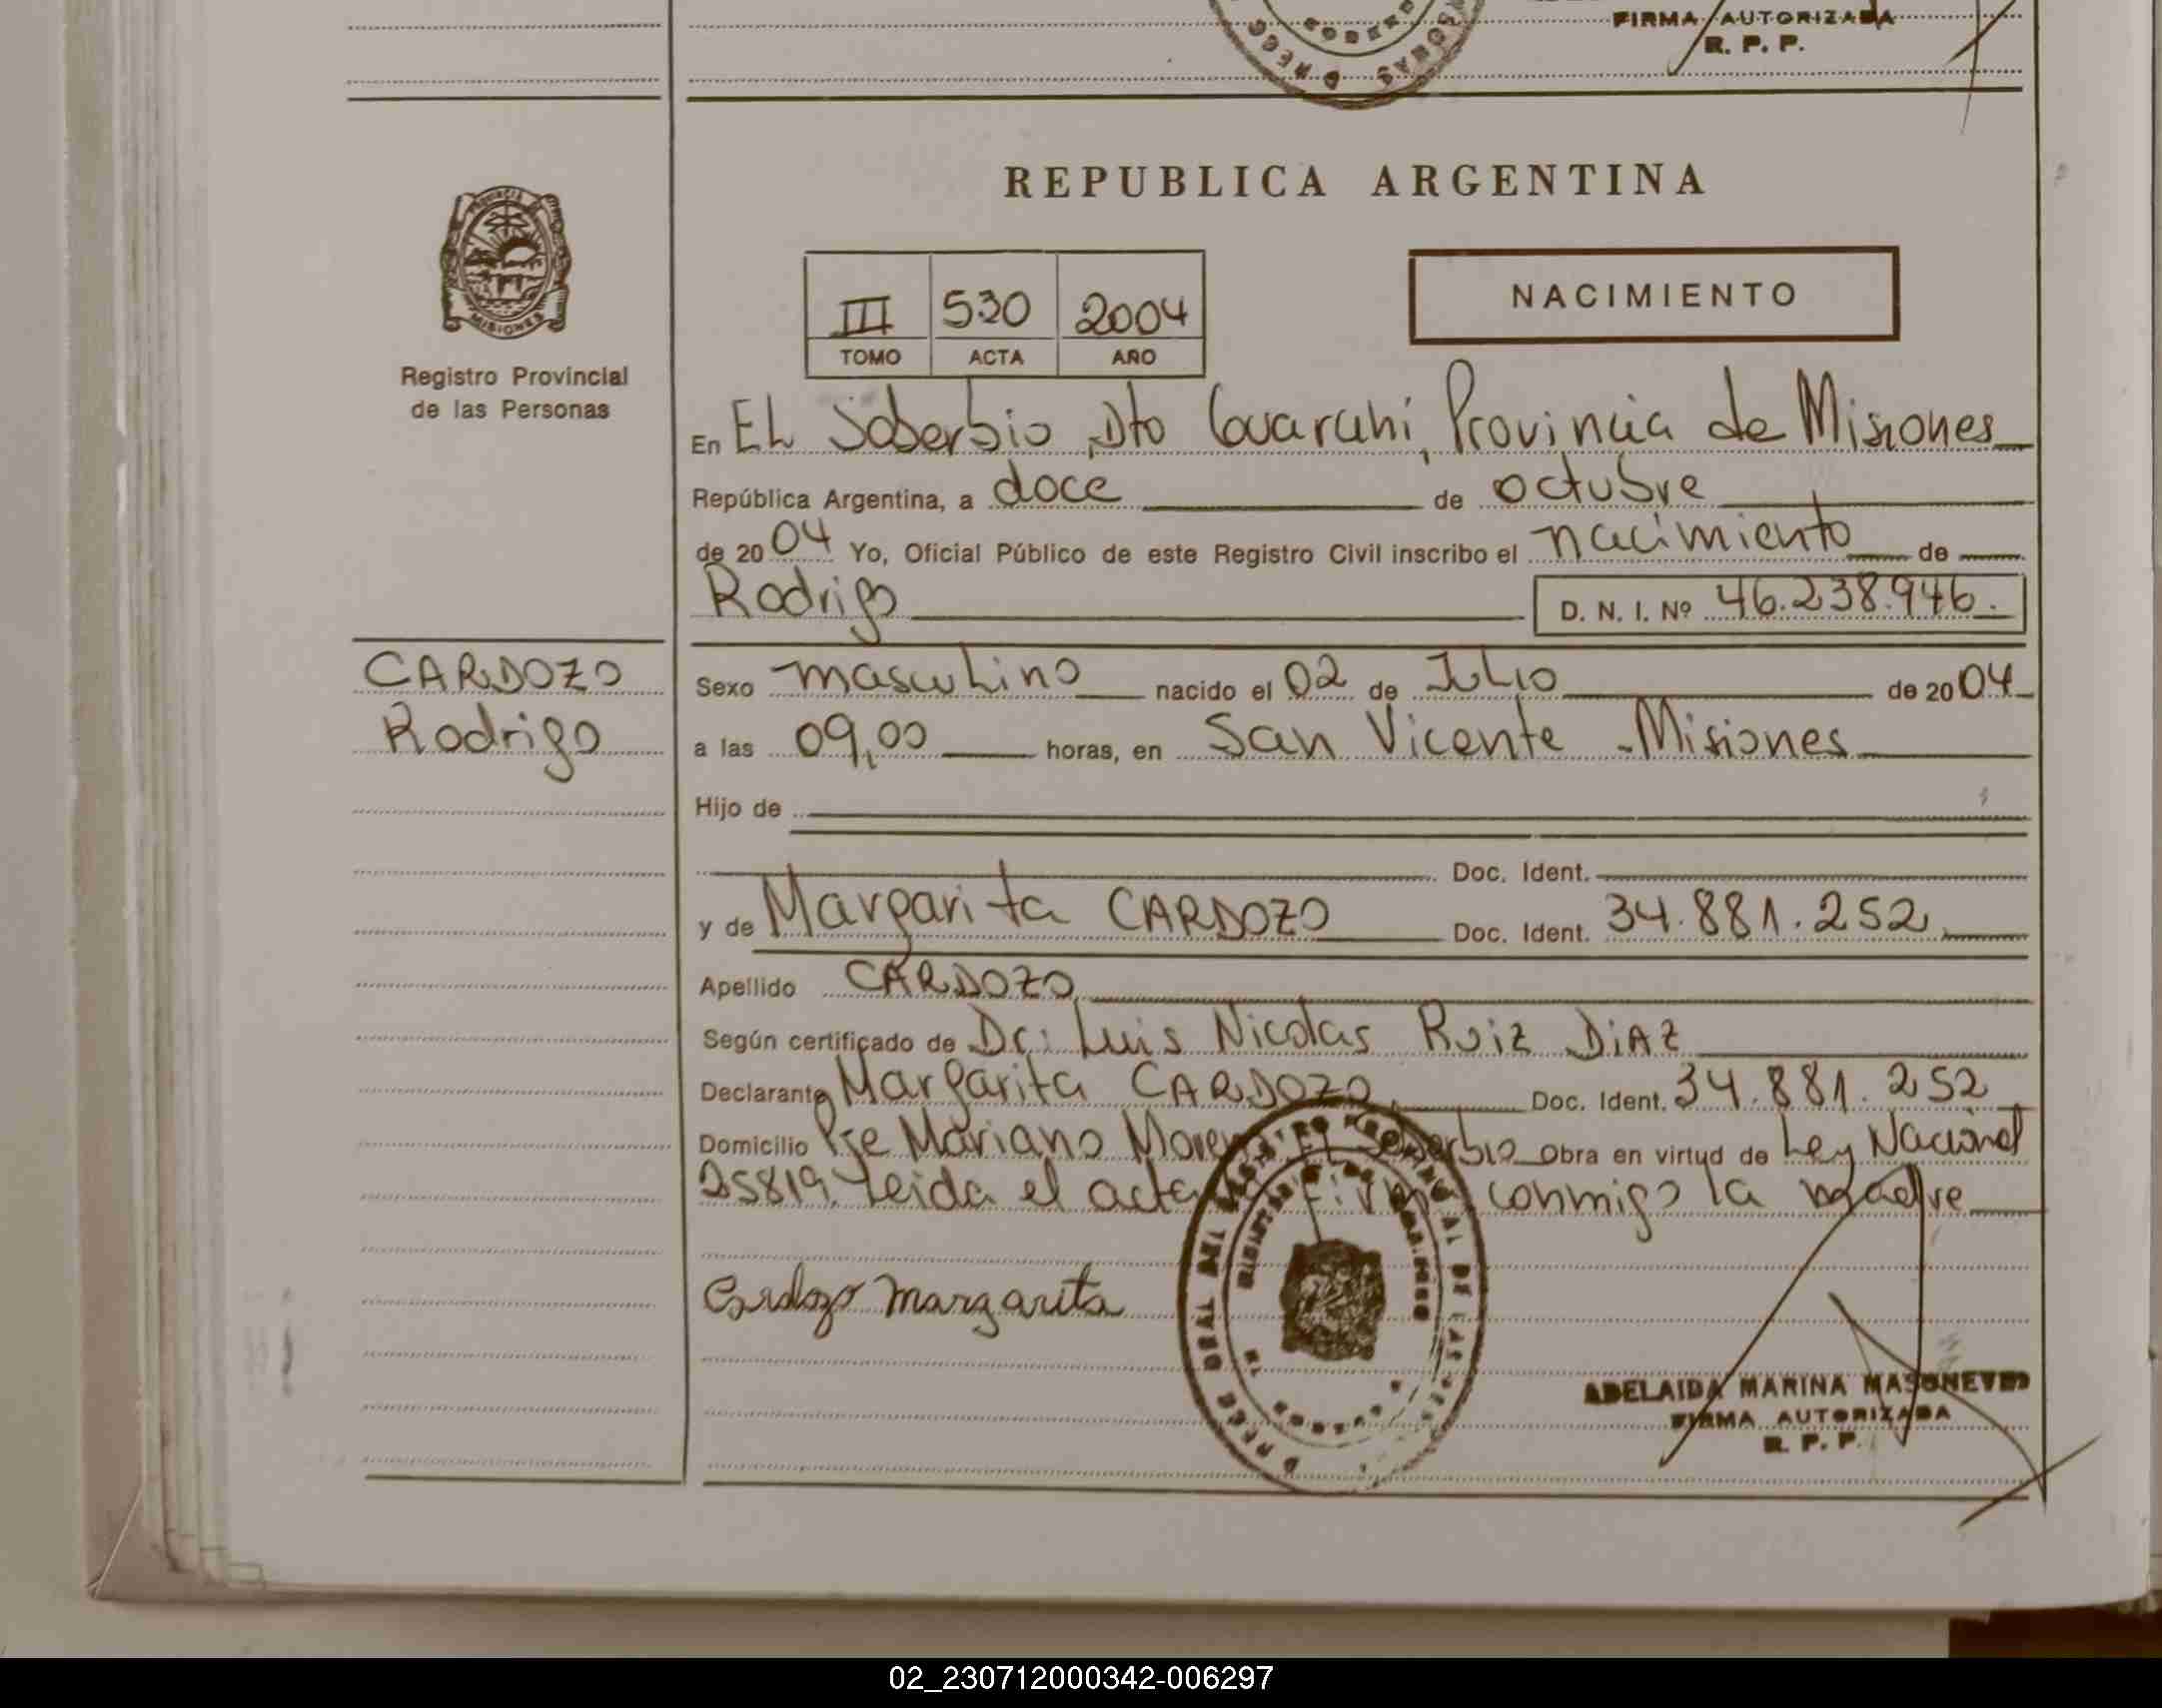 FIRMA AUTORIZADA
R. P. P.
REPUBLICA ARGENTINA
MISIONES
Registro Provincial
de las Personas
III 530 2004
TOMO ACTA AÑO
NACIMIENTO
En EL Soberbio, Dto Guarani, Provincia de Misiones
República Argentina, a doce de octubre
de 2004 Yo, Oficial Público de este Registro Civil inscribo el nacimiento de
Rodrigo D. N. I. Nº 46.238.946.
CARDOZO
Rodrigo
Sexo masculino nacido el 02 de Julio de 2004
a las 09,00 horas, en San Vicente - Misiones
Hijo de
Doc. Ident.
y de Margarita CARDOZO Doc. Ident. 34.881.252
Apellido CARDOZO
Según certificado de Dr: Luis Nicolas Ruiz DiAZ
Declarante Margarita CARDOZO Doc. Ident. 34.881.252
Domicilio Pje Mariano Moreno El Soberbio Obra en virtud de Ley Nacional
25819. Leida el acta firma conmigo la madre
Cardozo Margarita
ADELAIDA MARINA
FIRMA AUTORIZADA
R. P. P.
02_230712000342-006297